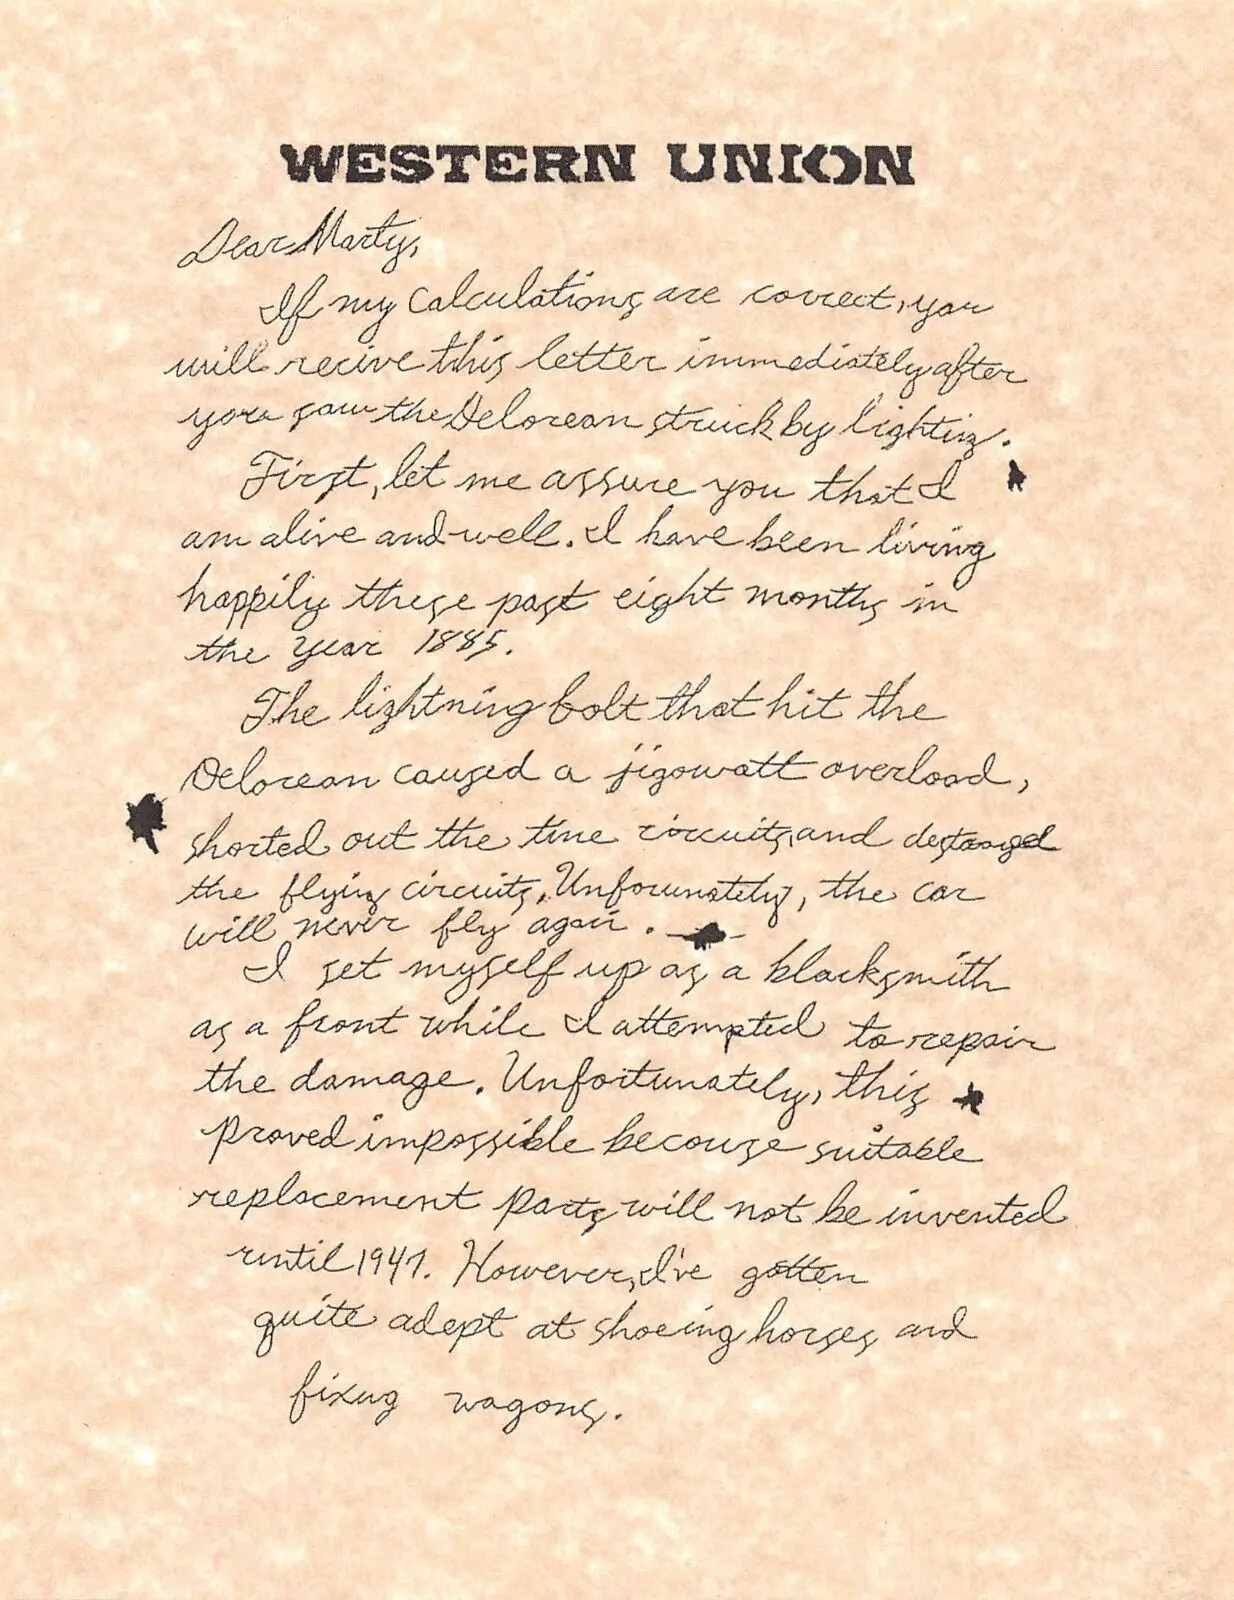 WESTERN UNION
Dear Marty,
If my calculations are correct, you
will recive this letter immediately after
you saw the Delorean struck by lightinz.
First, let me assure you that I
am alive and well. I have been living
happily these past eight months in
the year 1885.
The lightning bolt that hit the
Delorean caused a jigowatt overload,
shorted out the time circuits, and destoyed
the flying circuits. Unforunately, the car
will never fly again.
I set myself up as a blacksmith
as a front while I attempted to repair
the damage. Unfortunately, this
proved impossible becouse suitable
replacement parts will not be invented
until 1947. However, I've gotten
quite adept at shoeing horses and
fixing wagons.